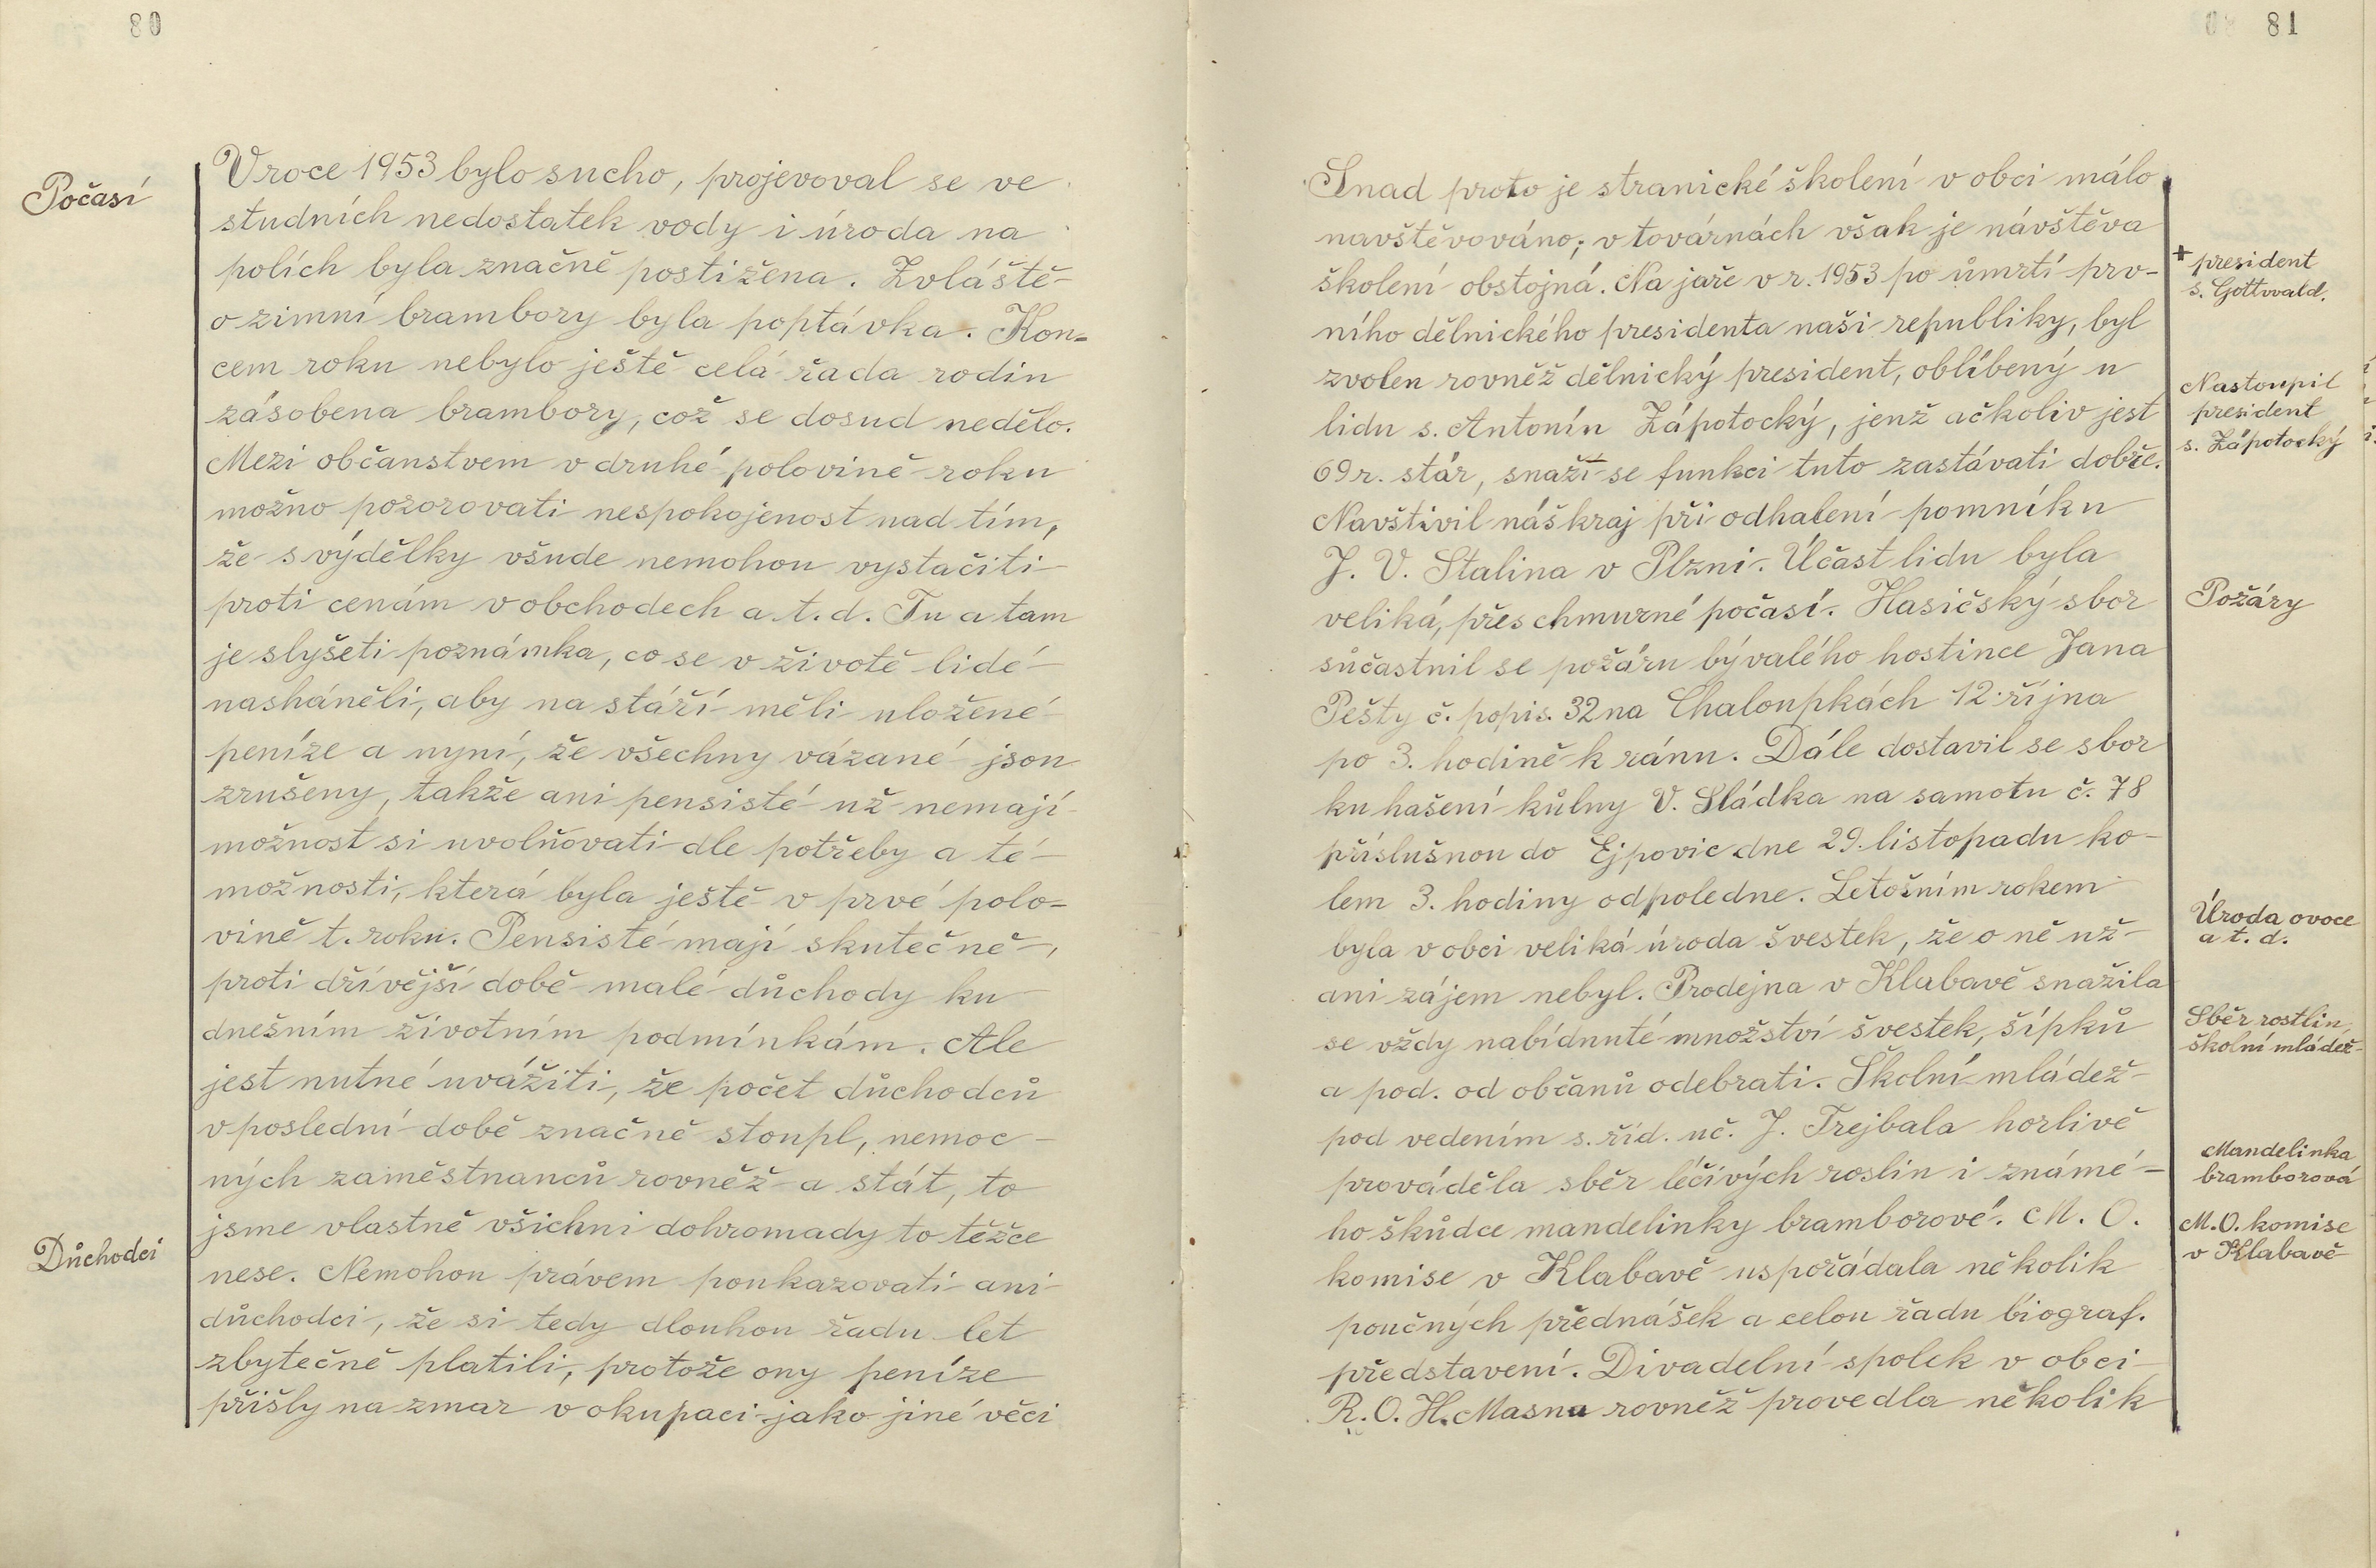 80
Počasí
V roce 1953 bylo sucho, projevoval se ve
studních nedostatek vody i úroda na
polích byla značně postižena. Zvláště
o zimní brambory byla poptávka. Kon=
cem roku nebylo ještě celá řada rodin
zásobena brambory, což se dosud nedělo.
Mezi občanstvem v druhé polovině roku
možno pozorovati nespokojenost nad tím,
že s výdělky všude nemohou vystačiti
proti cenám v obchodech a t. d. Tu a tam
je slyšeti poznámka, co se v životě lidé
nasháněli, aby na stáří měli uložené
peníze a nyní, že všechny vázané jsou
zrušeny, takže ani pensisté už nemají
možnost si uvolňovati dle potřeby a té
možnosti, která byla ještě v prvé polo=
vině t. roku. Pensisté mají skutečně,
proti dřívější době malé důchody ku
dnešním životním podmínkám. Ale
jest nutné uvážiti, že počet důchodců
v poslední době značně stoupl, nemoc-
ných zaměstnanců rovněž a stát, to
jsme vlastně všichni dohromady to těžce
Důchodci
nese. Nemohou právem poukazovati ani
důchodci, že si tedy dlouhou řadu let
zbytečně platili, protože ony peníze
přišly na zmar v okupaci jako jiné věci
81
Snad proto je stranické školení v obci málo
navštěvováno; v továrnách však je návštěva
školení obstojná. Na jaře v r. 1953 po úmrtí prv-
ního dělnického presidenta naši republiky, byl
zvolen rovněž dělnický president, oblíbený u
lidu s. Antonín Zápotocký, jenž ačkoliv jest
69 r. stár, snaží se funkci tuto zastávati dobře.
Navštivil náš kraj při odhalení pomníku
J. V. Stalina v Plzni. Účast lidu byla
veliká, přes chmurné počasí. Hasičský sbor
súčastnil se požáru bývalého hostince Jana
Pešty č. popis. 32 na Chaloupkách 12. října
po 3. hodině k ránu. Dále dostavil se sbor
ku hašení kůlny V. Sládka na samotu č. 78
příslušnou do Ejpovic dne 29. listopadu ko-
lem 3. hodiny odpoledne. Letošním rokem
byla v obci veliká úroda švestek, že o ně už
ani zájem nebyl. Prodejna v Klabavě snažila
se vždy nabídnuté množství švestek, šípků
a pod. od občanů odebrati. Školní mládež
pod vedením s. říd. uč. J. Trejbala horlivě
prováděla sběr léčivých roslin i známé-
ho škůdce mandelinky bramborové. M. O.
komise v Klabavě uspořádala několik
poučných přednášek a celou řadu biograf.
představení. Divadelní spolek v obci
R. O. H. Masna rovněž provedla několik
+ president
s. Gottwald.
Nastoupil
president
s. Zápotocký
Požáry
Úroda ovoce
a t. d.
Sběr rostlin,
školní mládež
Mandelinka
bramborová
M. O. komise
v Klabavě